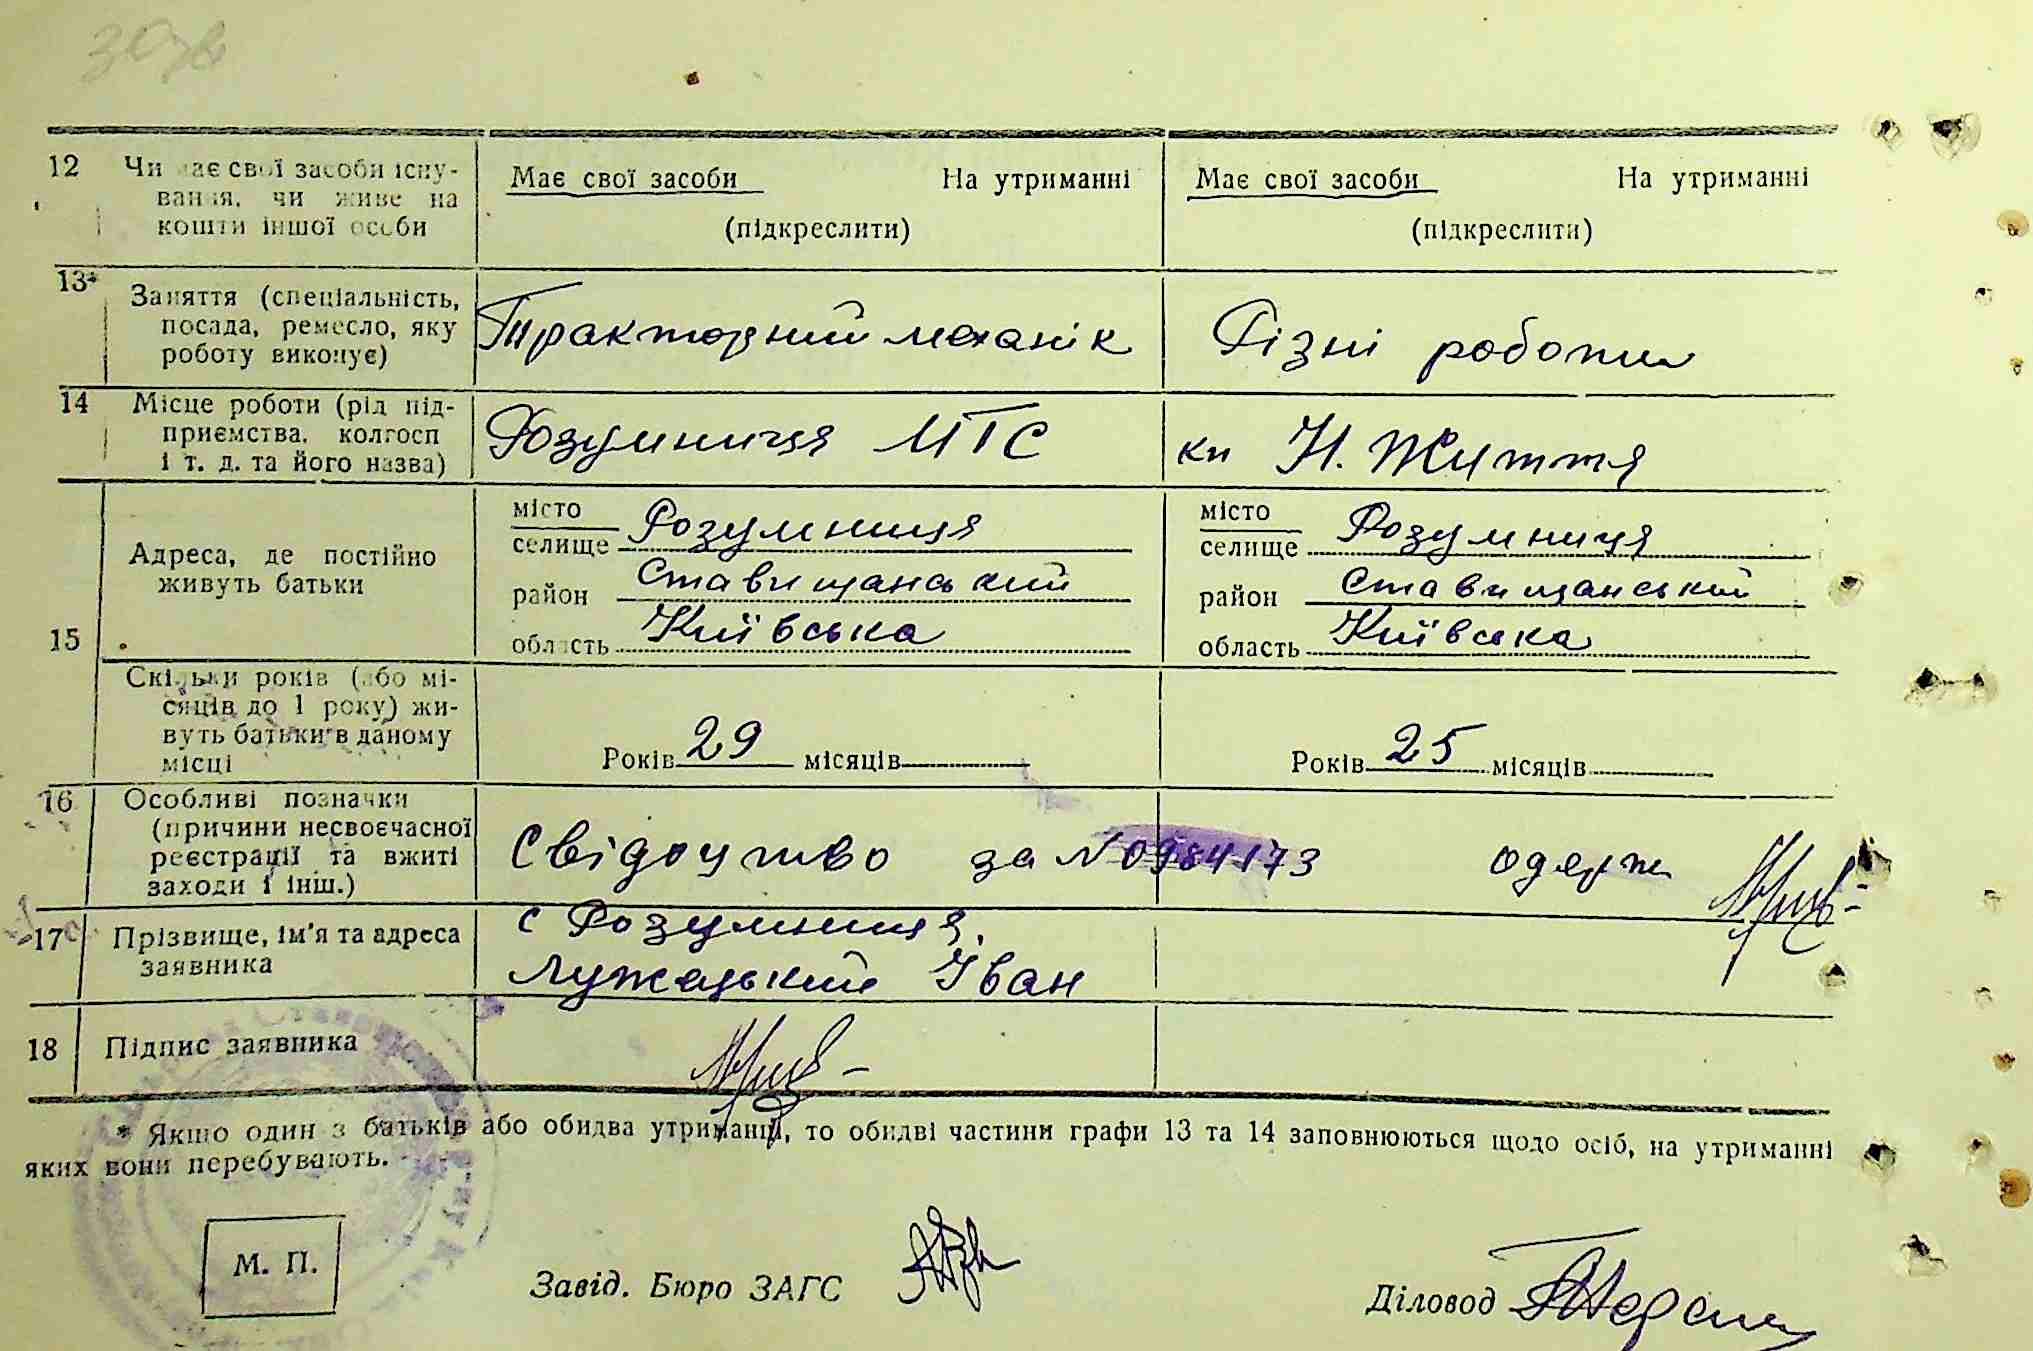 307в
12 Чи має свої засоби існу-
вання, чи живе на
кошти іншої особи
Має свої засоби На утриманні
(підкреслити)
Має свої засоби На утриманні
(підкреслити)
13* Заняття (спеціальність,
посада, ремесло, яку
роботу виконує)
Тракторний механік
Різні роботи
14 Місце роботи (рід під-
приємства, колгосп
і т. д. та його назва)
Розумниця МТС
кп Н. Життя
15 Адреса, де постійно
живуть батьки
місто
селище Розумниця
район Ставищанський
область Київська
місто
селище Розумниця
район Ставищанський
область Київська
Скільки років (або мі-
сяців до 1 року) жи-
вуть батьки в даному
місці
Років 29 місяців
Років 25 місяців
16 Особливі позначки
(причини несвоєчасної
реєстрації та вжиті
заходи і інш.)
Свідоцтво за № 0984173 одерж
17 Прізвище, ім'я та адреса
заявника
с Розумниця,
Лужецький Іван
18 Підпис заявника
* Якщо один з батьків або обидва утриманці, то обидві частини графи 13 та 14 заповнюються щодо осіб, на утриманні
яких вони перебувають.
М. П.
Завід. Бюро ЗАГС
Діловод